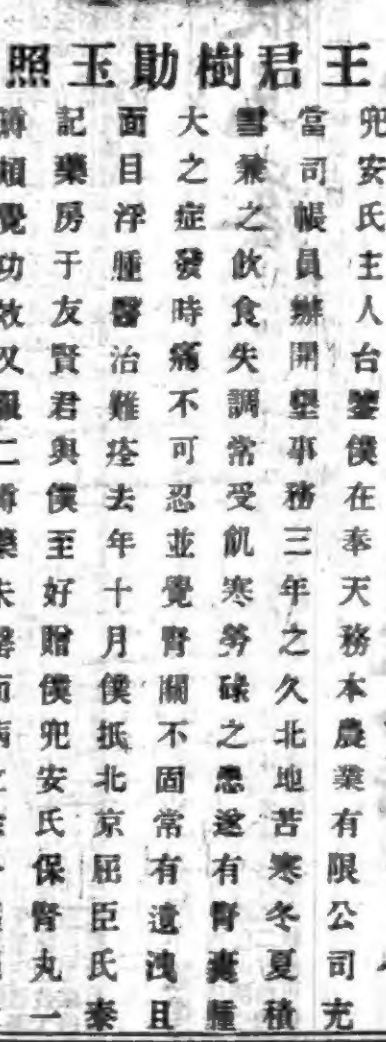 王君樹勛玉照
兜安氏主人台鑒僕在奉天務本農業有限公司充
當司帳員辦開墾事務三年之久北地苦寒冬夏積
雪兼之飲食失調常受飢寒勞碌之患遂有腎囊腫
大之症發時痛不可忍並覺腎關不固常有遺洩且
面目浮腫醫治難痊去年十月僕抵北京屈臣氏泰
記藥房于友賢君與僕至好贈僕兜安氏保腎丸一
頗覺功效又二未